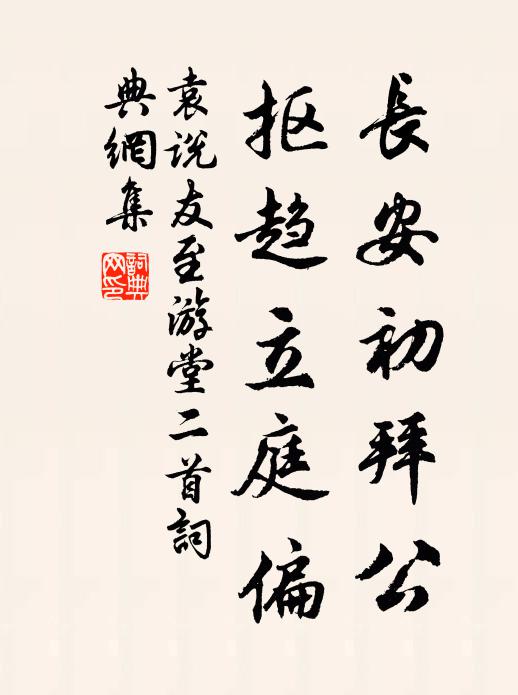 長安初拜公
抠趋立庭偏
袁说友至游堂二首詞
典網集
詞典网印